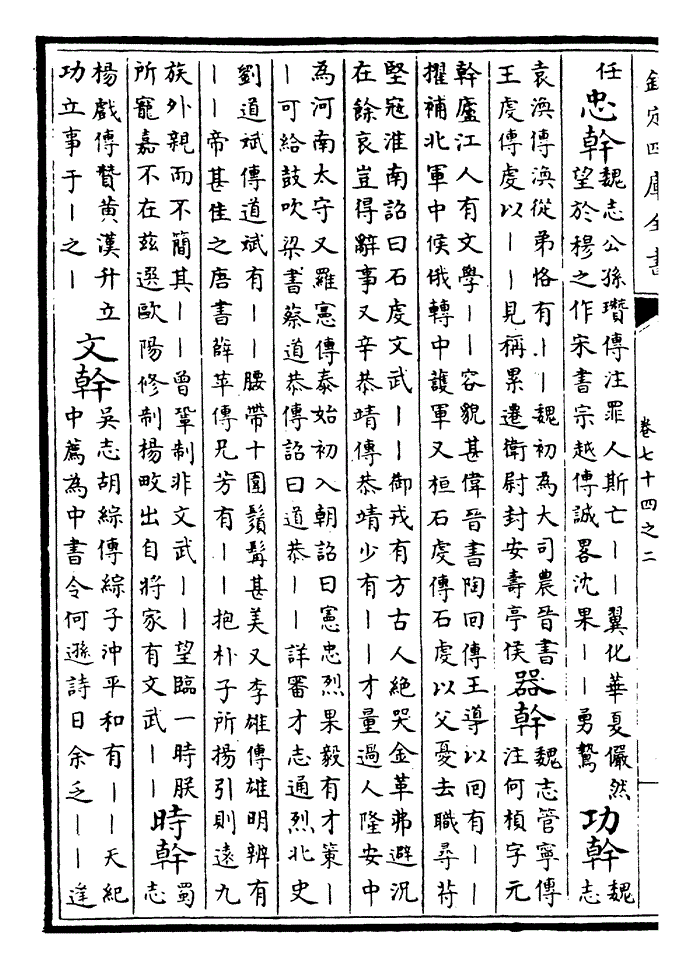 欽定四庫全書
卷七十四之二
任
忠幹
魏志公孫瓚傳注罪人斯亡——翼化華夏儼然
望於穆之作宋書宗越傳誠畧沈果——勇鷙
功幹
魏
志
袁渙傳渙從弟恪有——魏初為大司農晉書
王虔傳虔以——見稱累遷衛尉封安壽亭侯
器幹
魏志管寧傳
注何楨字元
幹廬江人有文學——容貌甚偉晉書陶回傳王導以回有——
擢補北軍中候俄轉中護軍又桓石虔傳石虔以父憂去職尋苻
堅寇淮南詔曰石虔文武——御戎有方古人絶哭金革弗避況
在餘哀豈得辭事又辛恭靖傳恭靖少有——才量過人隆安中
為河南太守又羅憲傳泰始初入朝詔曰憲忠烈果毅有才策—
—可給鼓吹梁書蔡道恭傳詔曰道恭——詳審才志通烈北史
劉道斌傳道斌有——腰帶十圍鬚髯甚美又李雄傳雄明辨有
——帝甚佳之唐書薛苹傳兄芳有——抱朴子所揚引則遠九
族外親而不簡其——曾鞏制非文武——望臨一時朕
所寵嘉不在兹選歐陽修制楊畋出自將家有文武——
時幹
蜀
志
楊戲傳贊黃漢升立
功立事于—之—
文幹
吳志胡綜傳綜子沖平和有——天紀
中薦為中書令何遜詩曰余乏——逢